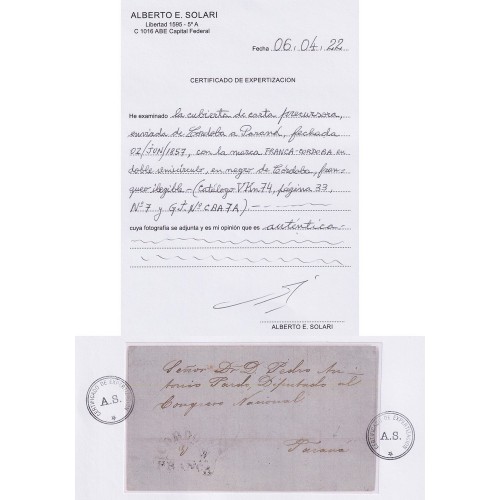 ALBERTO E. SOLARI
Libertad 1595 - 5º A
C 1016 ABE Capital Federal
Fecha 06.04.22
CERTIFICADO DE EXPERTIZACION
He examinado la cubierta de carta precursora,
enviada de Córdoba a Paraná, fechada
02/JUN/1857, con la marca FRANCA-CORDOBA en
doble semicírculo, en negro de Córdoba, fran-
queo ilegible - (Catálogo VKn74, página 33,
Nº 7 y GJ. Nº CBA7A)
cuya fotografía se adjunta y es mi opinión que es auténtica
ALBERTO E. SOLARI
Señor Dr. D. Pedro An-
tonio Pardo, Diputado al
Congreso Nacional
Paraná
CERTIFICADO DE EXPERTIZACION
A.S.
CERTIFICADO DE EXPERTIZACION
A.S.